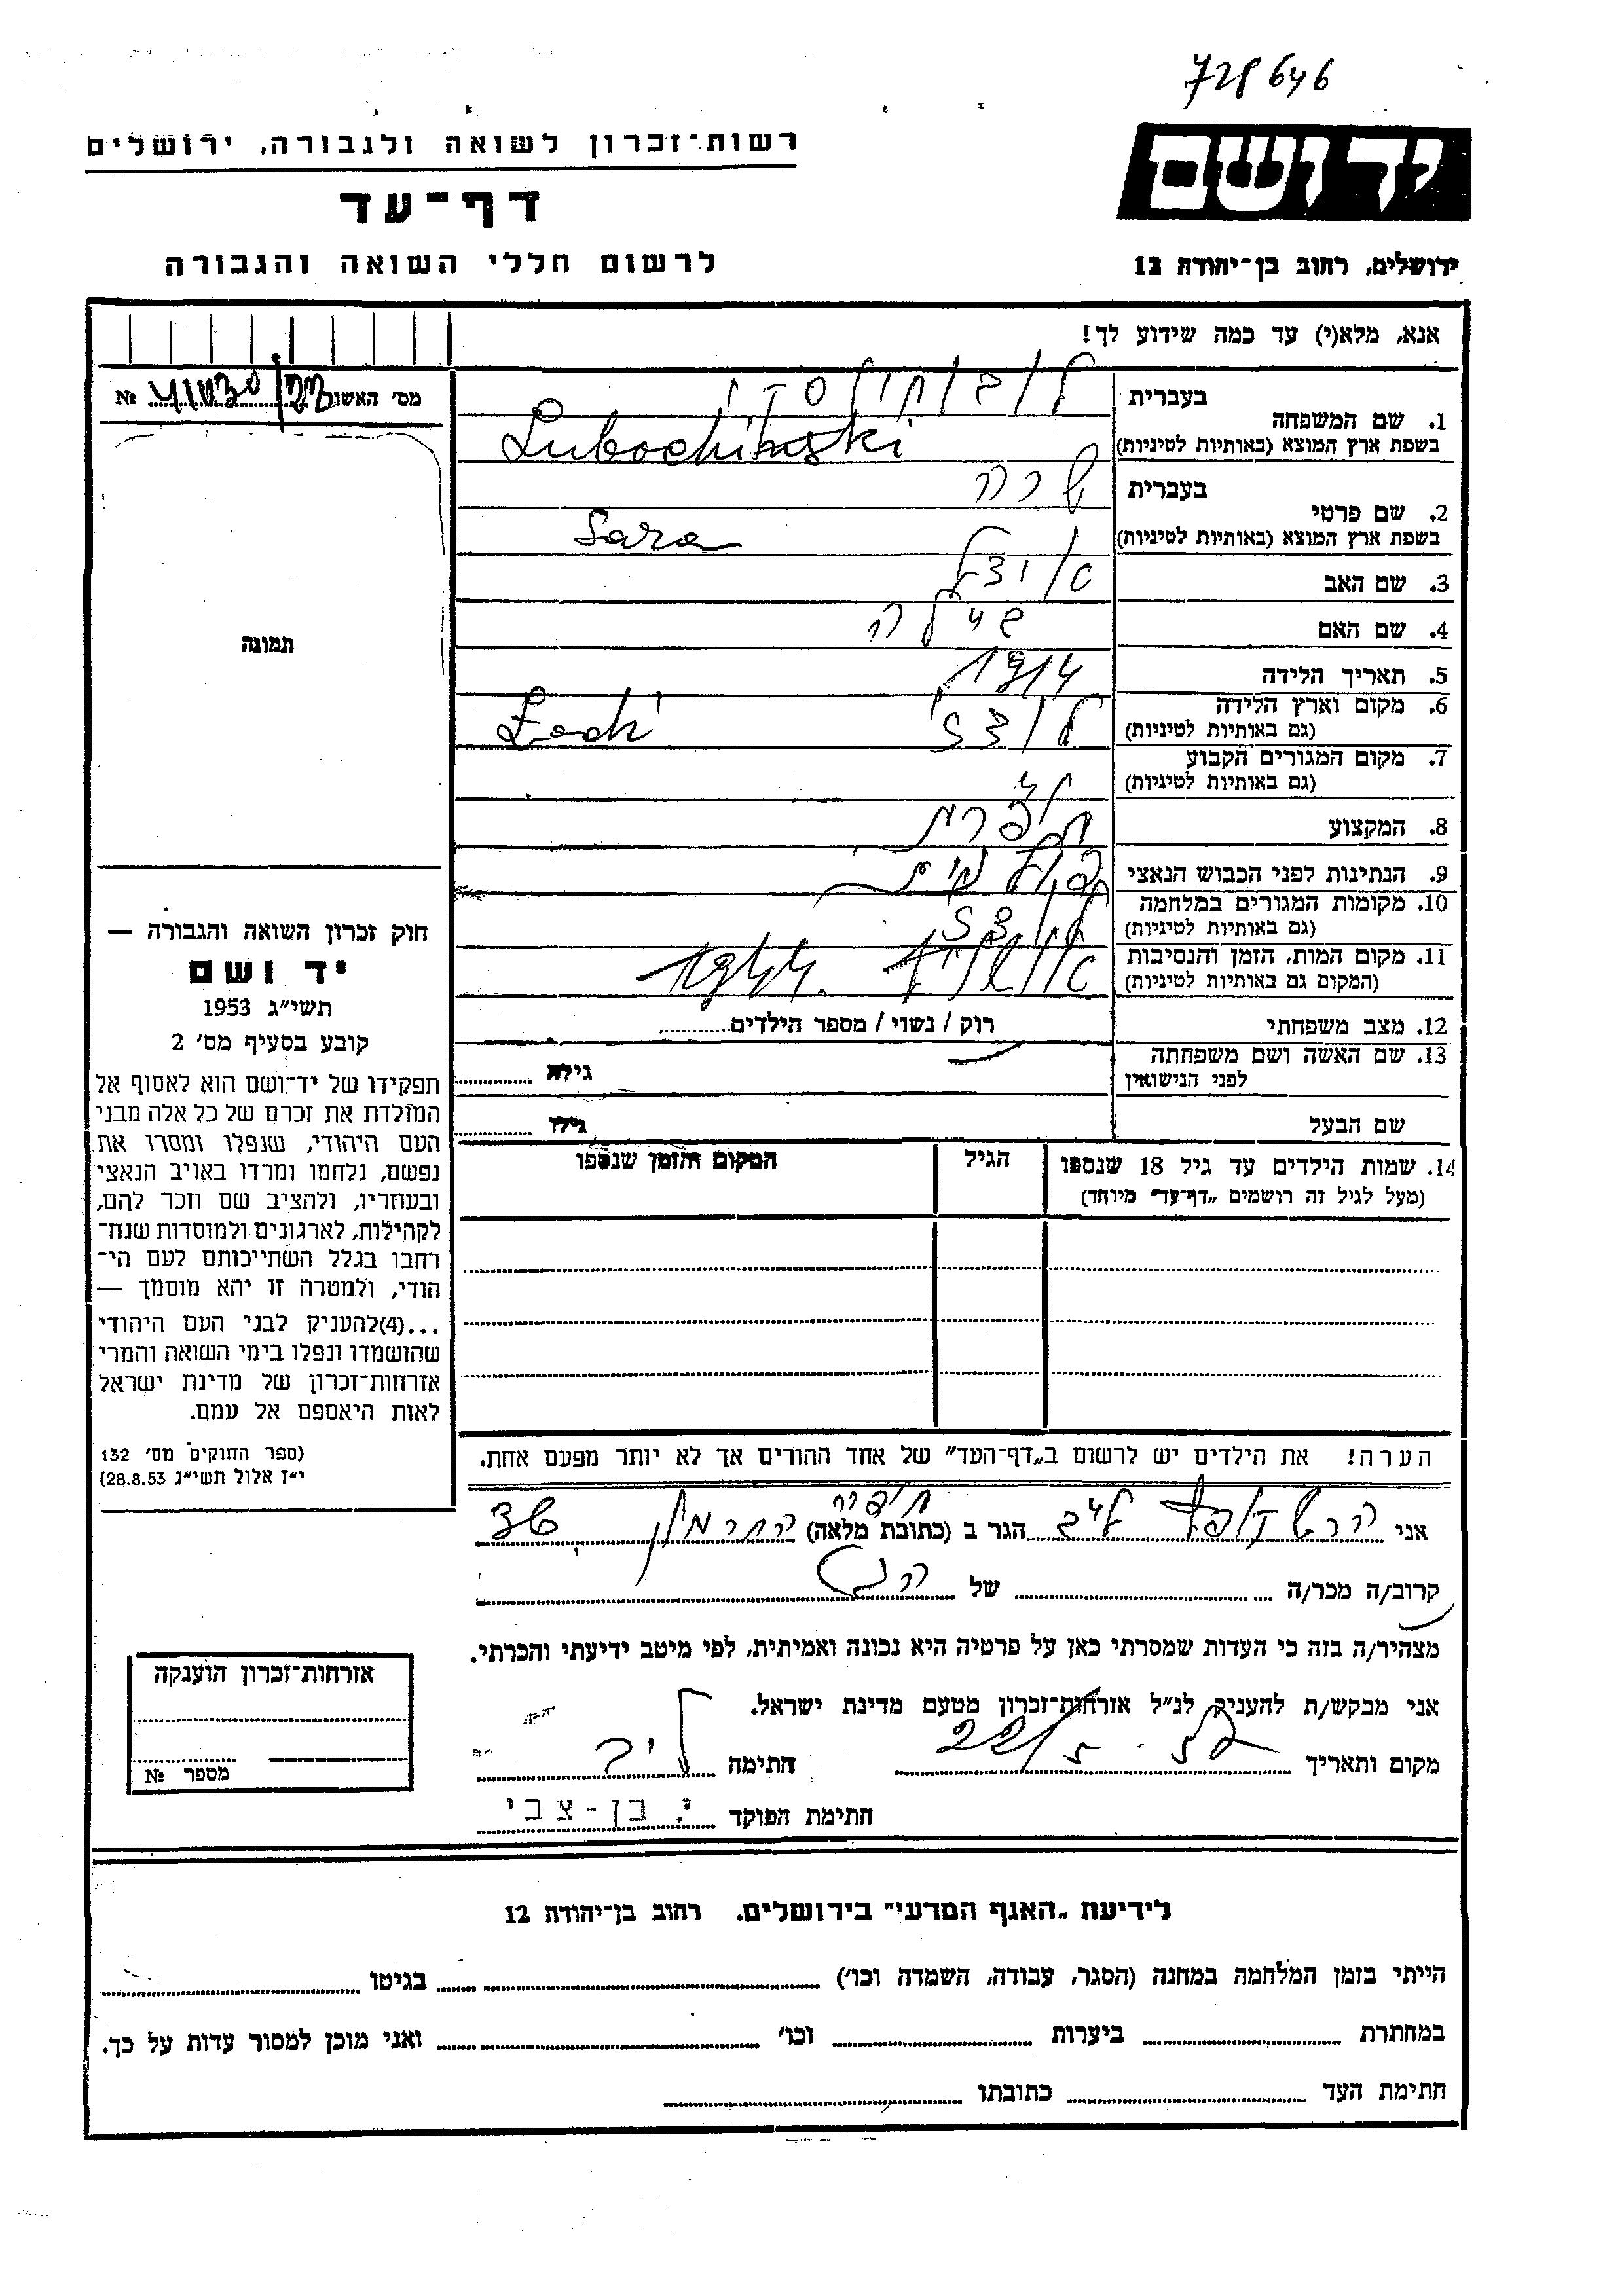 728646
יד ושם
רשות־זכרון לשואה ולגבורה, ירושלים
דף־עד
לרשום חללי השואה והגבורה
ירושלים, רחוב בן־יהודה 12
אנא, מלא(י) עד כמה שידוע לך!
מס' האשור № 
1. שם המשפחה
בעברית
בשפת ארץ המוצא (באותיות לטיניות) Lubochinski
2. שם פרטי
בעברית שרה
בשפת ארץ המוצא (באותיות לטיניות) Sara
3. שם האב
4. שם האם
5. תאריך הלידה 1914
6. מקום וארץ הלידה
(גם באותיות לטיניות) לודז' Łodź
7. מקום המגורים הקבוע
(גם באותיות לטיניות)
8. המקצוע תופרת
9. הנתינות לפני הכבוש הנאצי פולנית
10. מקומות המגורים במלחמה
(גם באותיות לטיניות) לודז'
11. מקום המות, הזמן והנסיבות
(המקום גם באותיות לטיניות) אושויץ 1944.
12. מצב משפחתי רוק / נשוי / מספר הילדים
13. שם האשה ושם משפחתה
לפני הנישואין
גילה
שם הבעל גילו
14. שמות הילדים עד גיל 18 שנספו
(מעל לגיל זה רושמים „דף־עד" מיוחד)
הגיל
המקום והזמן שנספו
תמונה
חוק זכרון השואה והגבורה —
יד ושם
תשי״ג 1953
קובע בסעיף מס׳ 2
תפקידו של יד־ושם הוא לאסוף אל
המולדת את זכרם של כל אלה מבני
העם היהודי, שנפלו ומסרו את
נפשם, נלחמו ומרדו באויב הנאצי
ובעוזריו, ולהציב שם וזכר להם,
לקהילות, לארגונים ולמוסדות שנח־
רחבו בגלל השתייכותם לעם הי־
הודי, ולמטרה זו יהא מוסמך —
...(4)להעניק לבני העם היהודי
שהושמדו ונפלו בימי השואה והמרי
אזרחות־זכרון של מדינת ישראל
לאות היאספם אל עמם.
(ספר החוקים מס׳ 132
י״ז אלול תשי״ג 28.8.53)
הערה! את הילדים יש לרשום ב„דף־העד" של אחד ההורים אך לא יותר מפעם אחת.
אני הגר ב (כתובת מלאה) חיפה
קרוב/ה מכר/ה של
מצהיר/ה בזה כי העדות שמסרתי כאן על פרטיה היא נכונה ואמיתית, לפי מיטב ידיעתי והכרתי.
אני מבקש/ת להעניק לנ״ל אזרחות־זכרון מטעם מדינת ישראל.
מקום ותאריך 22/5. 57 חתימה
חתימת הפוקד י. בן-צבי
אזרחות־זכרון הוענקה
מספר №
לידיעת „האגף המדעי" בירושלים, רחוב בן־יהודה 12
הייתי בזמן המלחמה במחנה (הסגר, עבודה, השמדה וכו׳) בגיטו
במחתרת ביערות וכו׳ ואני מוכן למסור עדות על כך.
חתימת העד כתובתו